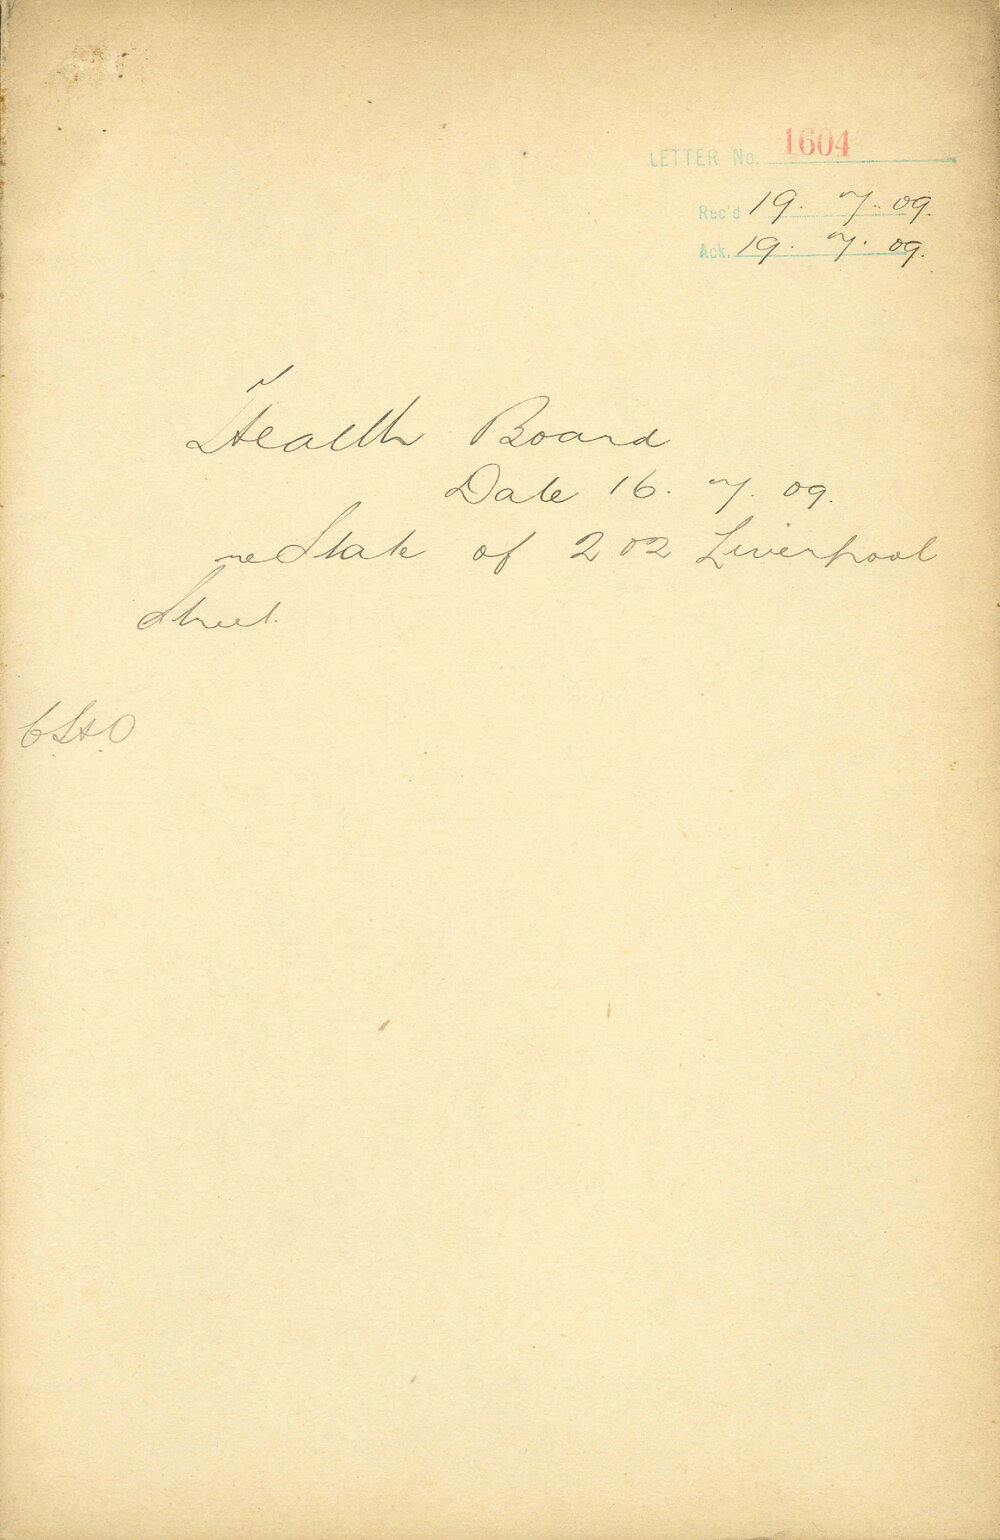 LETTER No. 1604
Rec'd 19. 7. 09.
Ack. 19. 7. 09.
Health Board
Date 16. 7. 09.
re State of 202 Liverpool
Street.